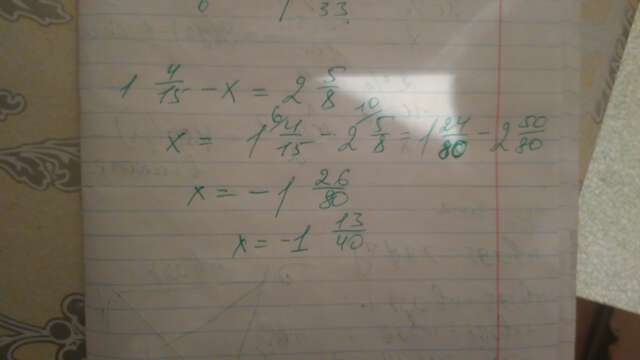 33
1 4/15 - x = 2 5/8
x = 1 4/15 6/ - 2 5/8 10/ = 1 24/80 - 2 50/80
x = -1 26/80
x = -1 13/40